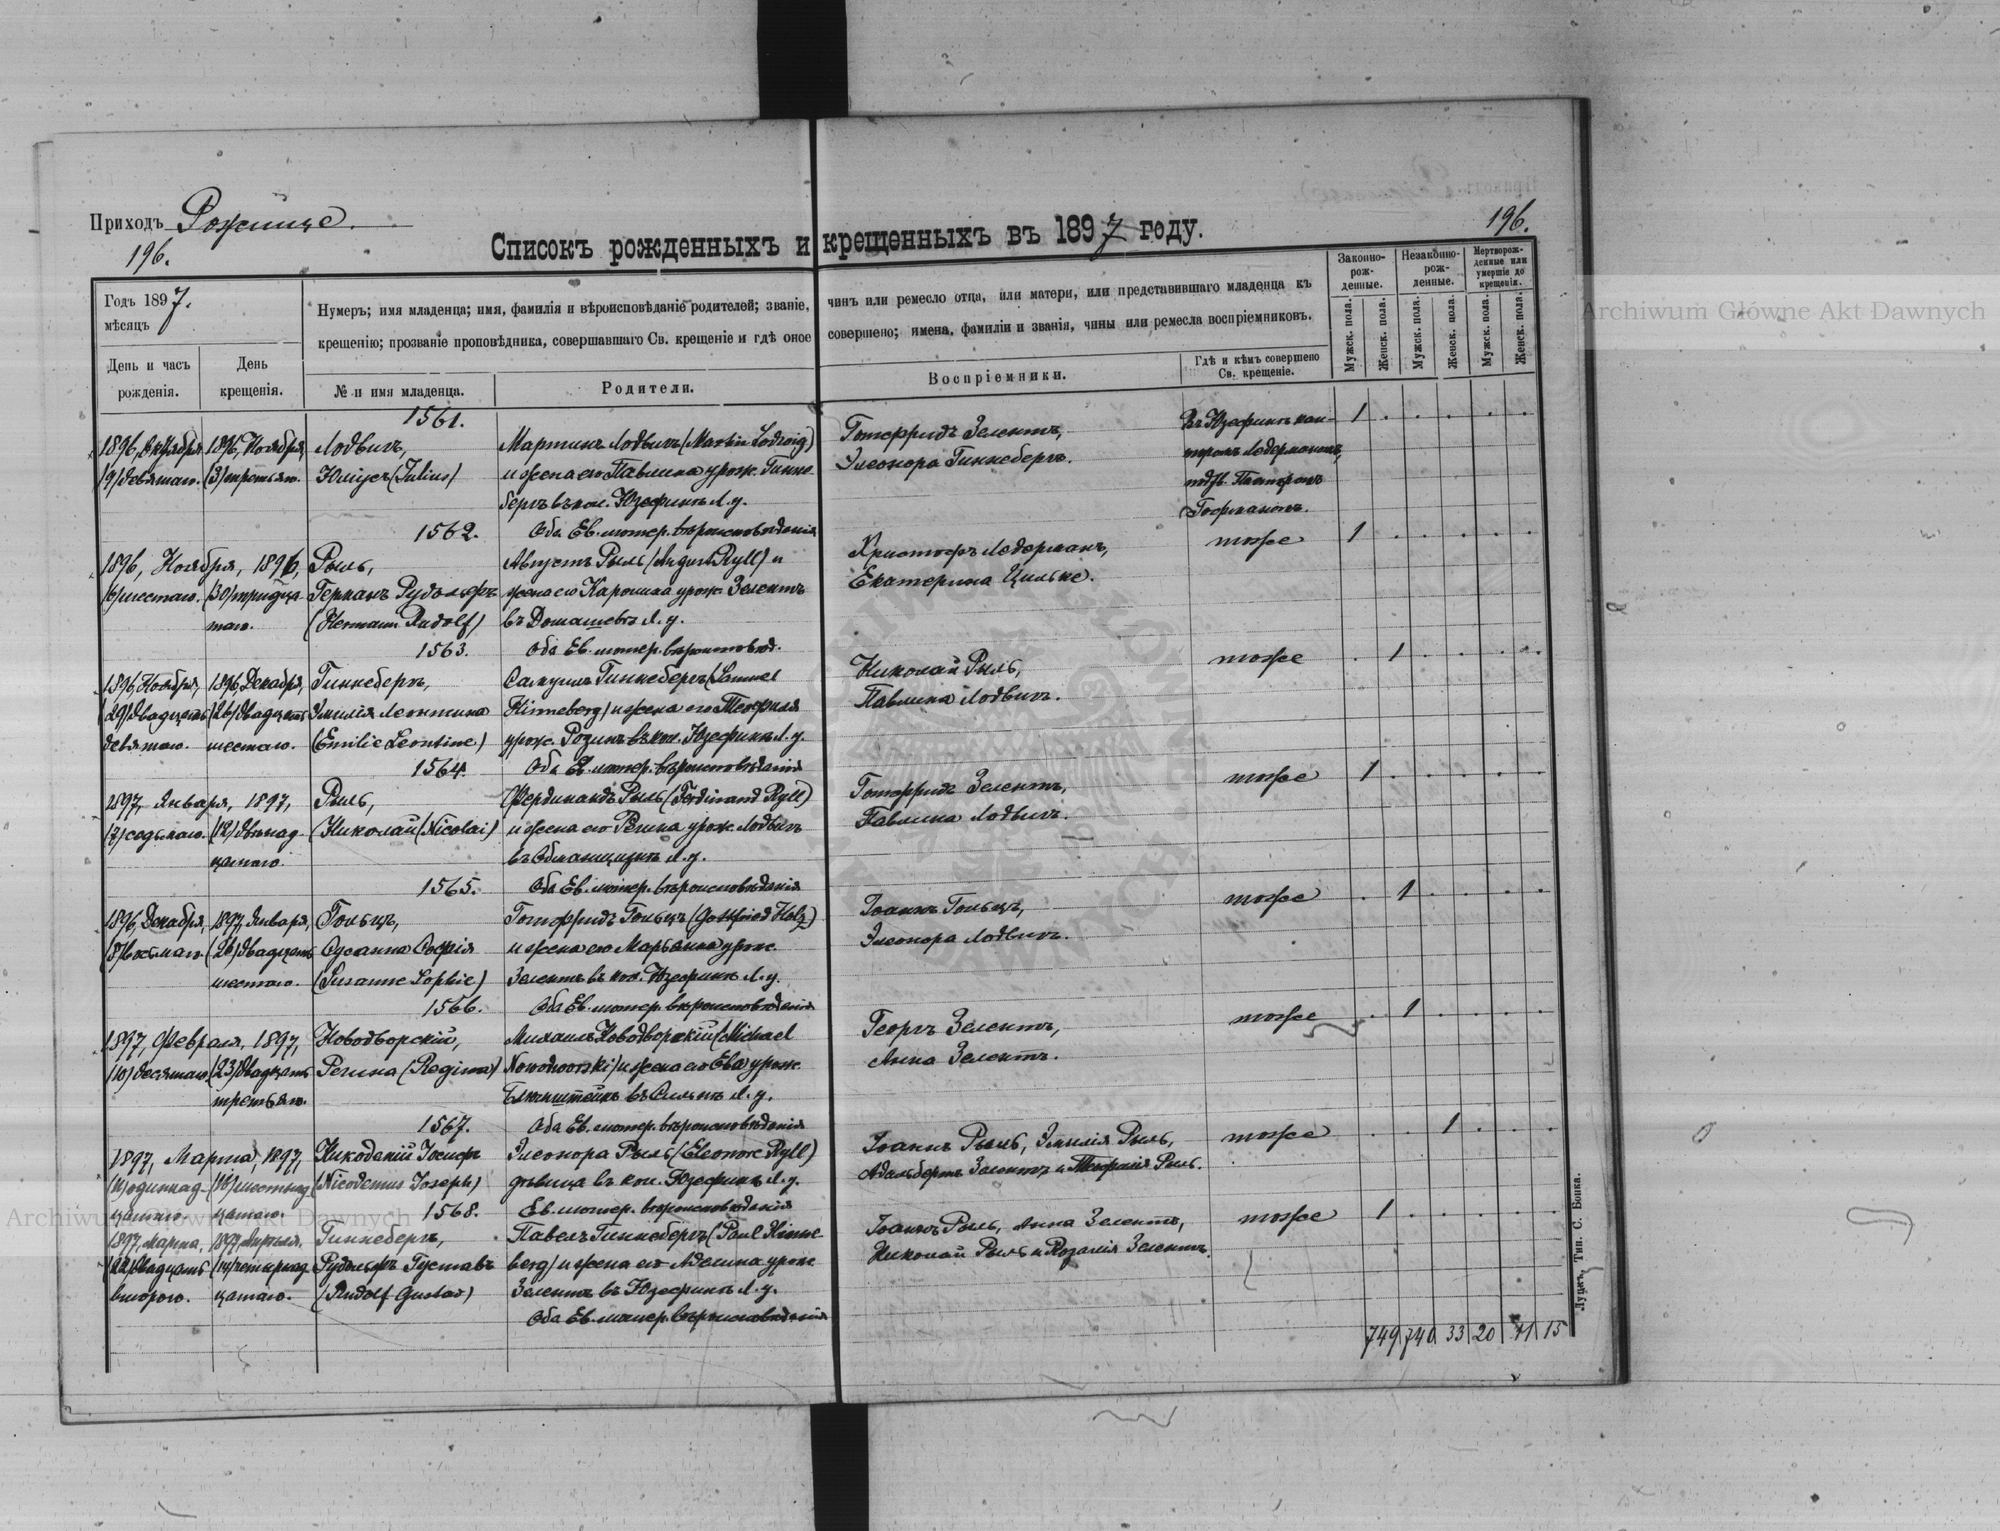 Приходъ Рожище.
196.
196.
Списокъ рожденныхъ и крещенныхъ въ 1897 году.
Годъ 1897.
мѣсяцъ
День и часъ рожденія.
День крещенія.
Нумеръ; имя младенца; имя, фамилія и вѣроисповѣданіе родителей; званіе, чинъ или ремесло отца, или матери, или представившаго младенца къ
крещенію; прозваніе проповѣдника, совершавшаго Св. крещеніе и гдѣ оное совершено; имена, фамиліи и званія, чины или ремесла воспріемниковъ.
№ и имя младенца.
Родители.
Воспріемники.
Гдѣ и кѣмъ совершено Св. крещеніе.
Законно-рож-денные.
Незаконно-рож-денные.
Мертворож-денные или умершіе до крещенія.
Мужск. пола.
Женск. пола.
Мужск. пола.
Женск. пола.
Мужск. пола.
Женск. пола.
1561.
1896, Октября 1896, Ноября, Лодвигъ, Мартинъ Лодвигъ (Martin Lodwig) Готфридъ Зелентъ, Въ Юзефинѣ кан- 1
(9) девятаго. (3) третьяго. Юліусъ (Julius) и жена его Павлина урож. Гинне- Элеонора Гиннебергъ. торомъ Ледерманомъ,
бергъ въ кол. Юзефинѣ Л. у. подтв. Пасторомъ
Оба Ев. лютер. вѣроисповѣданія Госманомъ.
1562.
1896, Ноября, 1896, Рыль, Августъ Рыль (August Ryll) и Христофъ Ледерманъ, тоже 1
(6) шестаго. (30) тридца- Германъ Рудольфъ жена его Каролина урож. Зелентъ Екатерина Цильке.
таго. (Hermann Rudolf) въ Домашевѣ Л. у.
1563. Оба Ев. лютер. вѣроисповѣд.
1896, Ноября, 1896, Декабря, Гиннебергъ, Самуилъ Гиннебергъ (Samuel Николай Рыль, тоже 1
(29) двадцать (26) двадцать Эмилія Леонтина Hinneberg) и жена его Теофиля Павлина Лодвигъ.
девятаго. шестаго. (Emilie Leontine) урож. Розинъ въ кол. Юзефинѣ Л. у.
1564. Оба Ев. лютер. вѣроисповѣданія
1897, Января, 1897, Рыль, Фердинандъ Рыль (Ferdinand Ryll) Готфридъ Зелентъ, тоже 1
(7) седьмаго. (12) двѣнад- Николай (Nicolai) и жена его Регина урож. Лодвигъ Павлина Лодвигъ.
цатаго. Л. у.
1565. Оба Ев. лютер. вѣроисповѣданія
1896, Декабря, 1897, Января, Гольцъ, Готфридъ Гольцъ (Gottfried Holz) Іоаннъ Гольцъ, тоже 1
(8) восьмаго. (26) двадцать Сусанна Софія и жена его Марьянна урож. Элеонора Лодвигъ.
шестаго. (Susanne Sophie) Зелентъ въ кол. Юзефинѣ Л. у.
1566. Оба Ев. лютер. вѣроисповѣданія
1897, Февраля, 1897, Новодворскій, Михаилъ Новодворскій (Michael Георгъ Зелентъ, тоже 1
(10) десятаго (23) двадцать Регина (Regina) Nowodworski) и жена его Ева урож. Анна Зелентъ.
третьяго. Л. у.
1567. Оба Ев. лютер. вѣроисповѣданія
1897, Марта, 1897, Никодемій Іосифъ Элеонора Рыль (Eleonore Ryll) Іоаннъ Рыль, Эмилія Рыль, тоже 1
(11) одиннад- (16) шестнад- (Nicodemus Joseph) дѣвица въ кол. Юзефинѣ Л. у. Адальбертъ Зелентъ и Теофилія Рыль.
цатаго. цатаго. 1568. Ев. лютер. вѣроисповѣданія
1897, Марта, 1897, Апрѣля, Гиннебергъ, Павелъ Гиннебергъ (Paul Hinne- Іоаннъ Рыль, Анна Зелентъ, тоже 1
(22) двадцать (14) четырнад- Рудольфъ Густавъ berg) и жена его Аделина урож. Николай Рыль и Розалія Зелентъ.
втораго. цатаго. (Rudolf Gustav) Зелентъ въ Юзефинѣ Л. у.
Оба Ев. лютер. вѣроисповѣданія
749 740 33 20 41 15
Луцкъ, Тип. С. Бонка.
Archiwum Główne Akt Dawnych
Archiwum Główne Akt Dawnych